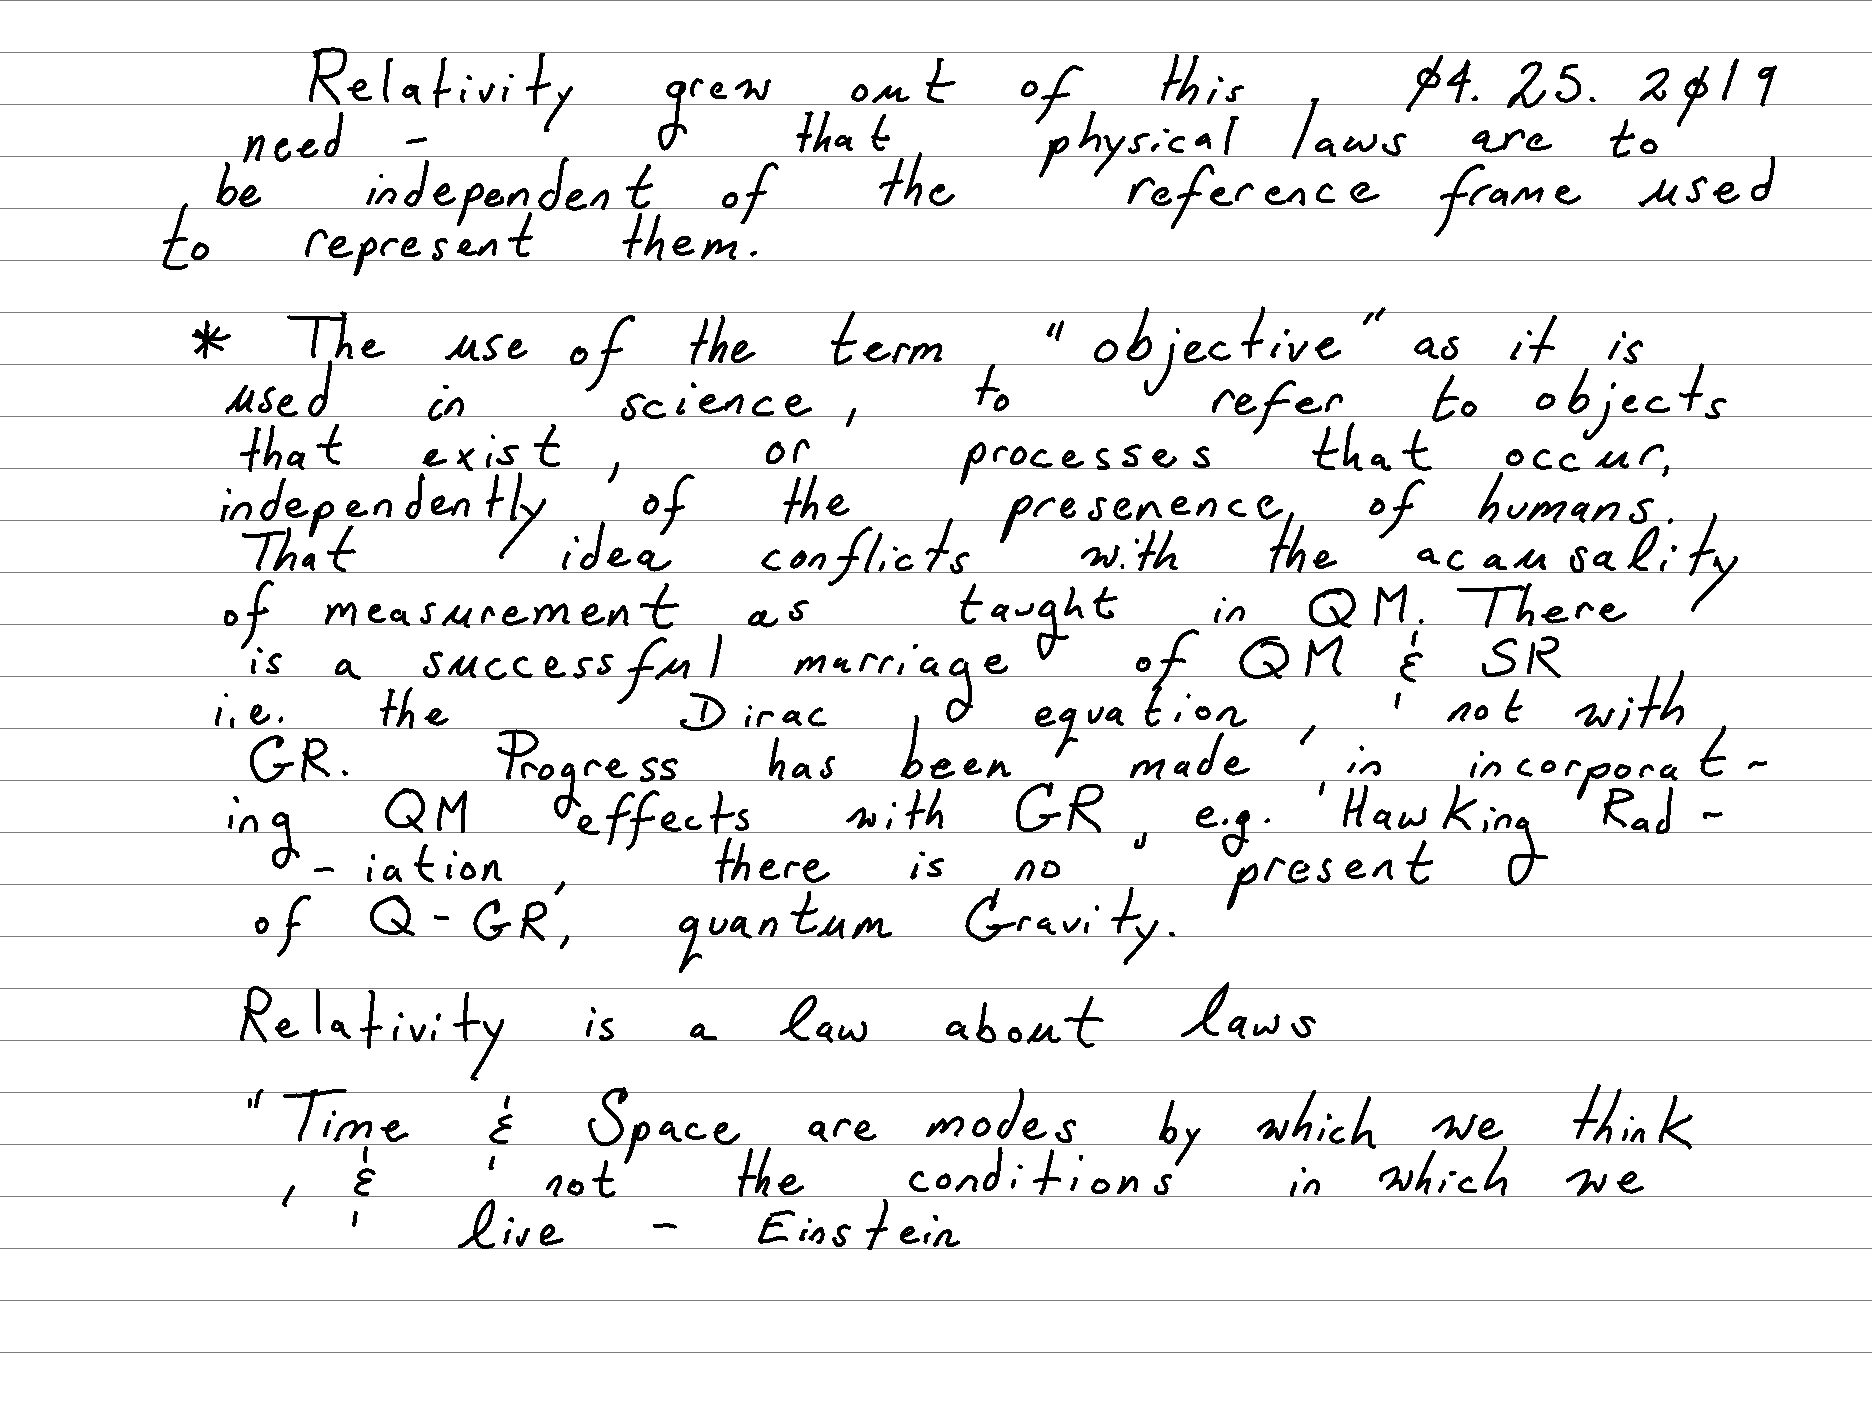 Relativity grew out of this, 04.25.2019
need - that physical laws are to
be independent of the reference frame used
to represent them.
* The use of the term "objective" as it is
used in science, to refer to objects
that exist, or processes that occur,
independently of the presenence of humans.
That idea conflicts with the acausality
of measurement as taught in QM. There
is a successful marriage of QM & SR
i.e. the Dirac equation, not with
GR. Progress has been made in incorporat-
ing QM effects with GR, e.g. Hawking Rad-
-iation, there is no present
of Q-GR, quantum Gravity.
Relativity is a law about laws
"Time & Space are modes by which we think
, & not the conditions in which we
live - Einstein